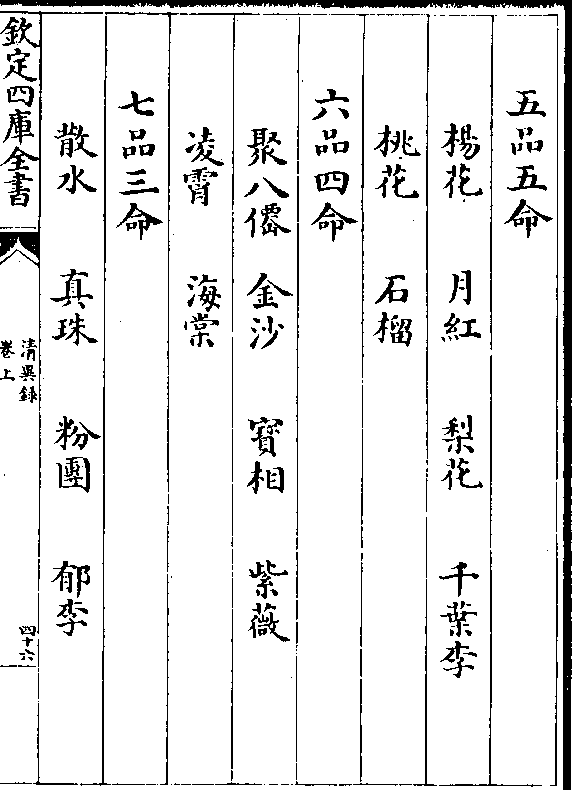 五品五命
楊花　月紅　梨花　千葉李
桃花　石榴
六品四命
聚八僊　金沙　寳相　紫薇
凌霄　海棠
七品三命
散水　真珠　粉團　郁李
欽定四庫全書
清異録
卷上
四十六